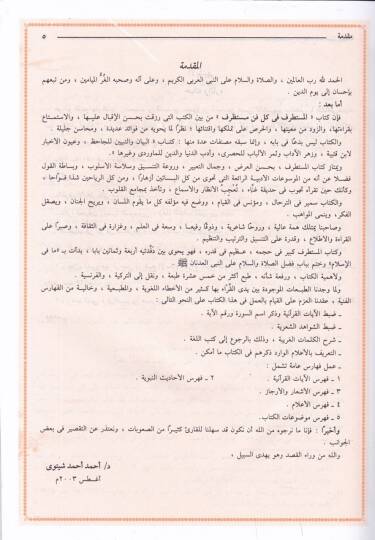 مقدمة
٥
المقدمة
الحمد لله رب العالمين ، والصلاة والسلام على النبى العربى الكريم ، وعلى آله وصحبه الغُرِّ الميامين ، ومن تبعهم
بإحسان إلى يوم الدين .
أما بعد :
فإن كتاب « المستطرف فى كل فن مستظرف » من بين الكتب التى رزقت بحسن الإقبال عليها ، والاستمتاع
بقراءتها، والزود من معينها، والحرص على تملكها واقتنائها ؛ نظرًا لما يحويه من فوائد عديدة ، ومحاسن جليلة .
والكتاب ليس بدعًا فى بابه ، وإنما سبقه مصنفات عدة منها : كتاب « البيان والتبيين للجاحظ ، وعيون الأخبار
لابن قتيبة ، وزهر الآداب وثمر الألباب للحصرى، وأدب الدنيا والدين للماوردى وغيرها » .
ويمتاز كتاب المستطرف ، بحسن العرض ، وجمال التعبير ، وروعة التنسيق وسلامة الأسلوب ، وبساطة القول
فضلا عن أنه من الموسوعات الأدبية الرائعة التى تحوى من كل البساتين أزهارًا ، ومن كل الرياحين شذا فواحًا »
وكأنك حين تقرأه تجوب فى حديقة غنَّاء ، تُعْجِبُ الأنظار والأسماع ، وتأخذ بمجامع القلوب .
والكتاب سمير فى الترحال ، ومؤنس فى القيام ، ووضع فيه مؤلفه كل ما يقوم اللسان ، ويريح الجنان، ويصقل
الفكر ، وينمى المواهب .
وصاحبنا يمتلك همة عالية ، وروحًا شاعرية ، وذوقًا رفيعا ، وسعة فى العلم ، وغزارة فى الثقافة ، وصبرًا على
القراءة والاطلاع ، وقدرة على التنسيق والترتيب والتنظيم .
وكتاب المستطرف كبير فى حجمه ، عظيم فى قدره ، فهو يحوى بين دفَّتيه أربعة وثمانين بابا ، بدأت بـ «ما فى
الإسلام» وختم بباب فضل الصلاة والسلام على النبى العدنان ﷺ .
ولأهمية الكتاب ، ورفعة شأنه ، طبع أكثر من خمس عشرة طبعة ، ونقل إلى التركية ، والفرنسية .
ولما وجدنا الطبعات الموجودة بين يدى القُرَّاء بها كثير من الأخطاء اللغوية ، والمطبعية ، وخالية من الفهارس
الفنية ، عقدنا العزم على القيام بالعمل فى هذا الكتاب على النحو التالى :
ـ ضبط الآيات القرآنية وذكر اسم السورة ورقم الآية .
ـ ضبط الشواهد الشعرية .
ـ شرح الكلمات الغريبة ، وذلك بالرجوع إلى كتب اللغة .
ـ التعريف بالأعلام الوارد ذكرهم فى الكتاب ما أمكن .
ـ عمل فهارس عامة تشمل :
١ ـ فهرس الآيات القرآنية . ٢ ـ فهرس الأحاديث النبوية .
٣ ـ فهرس الأشعار والأرجاز .
٤ ـ فهرس الأعلام .
٥ ـ فهرس موضوعات الكتاب.
وأخيرًا : فإنا ما نرجوه من الله أن نكون قد سهلنا للقارئ كثيرًا من الصعوبات ، ونعتذر عن التقصير فى بعض
الجوانب .
والله من وراء القصد وهو يهدى السبيل ،
د/ أحمد أحمد شيتوى
أغسطس ٢٠٠٣م